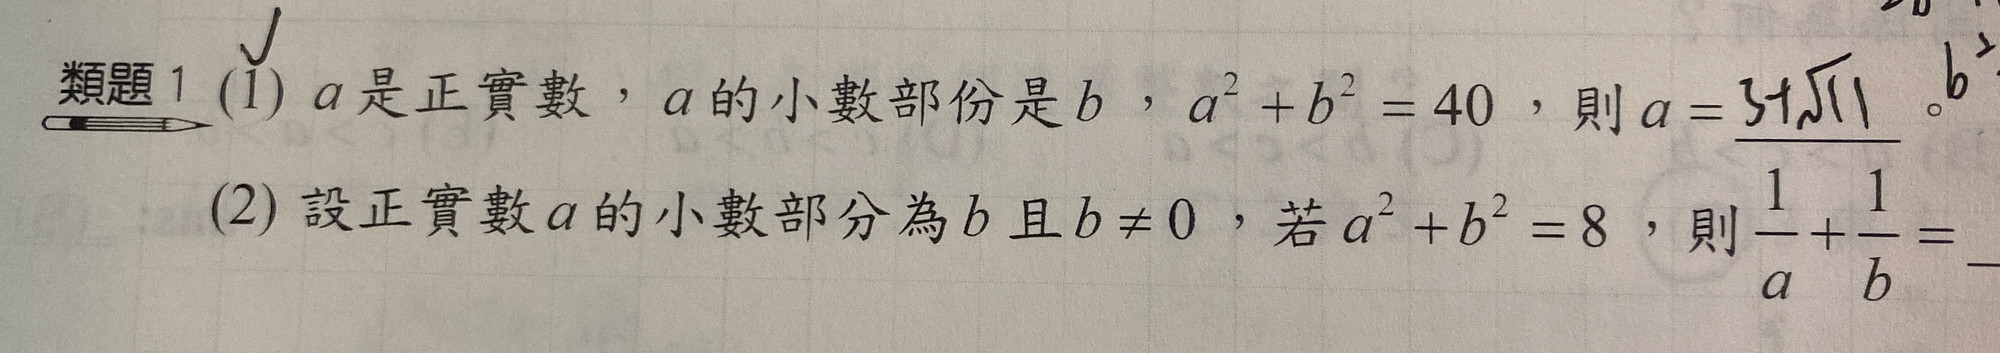 類題 1 (1) a 是正實數，a 的小數部份是 b，a² + b² = 40，則 a = 3+√11。 b²
(2) 設正實數 a 的小數部分為 b 且 b ≠ 0，若 a² + b² = 8，則 1/a + 1/b =